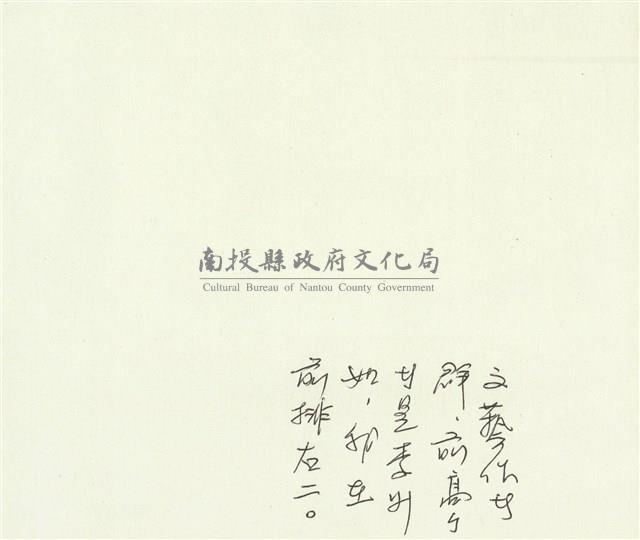 南投縣政府文化局
Cultural Bureau of Nantou County Government
文藝作者
群,前高个
者是李升
如,我在
前排左二。